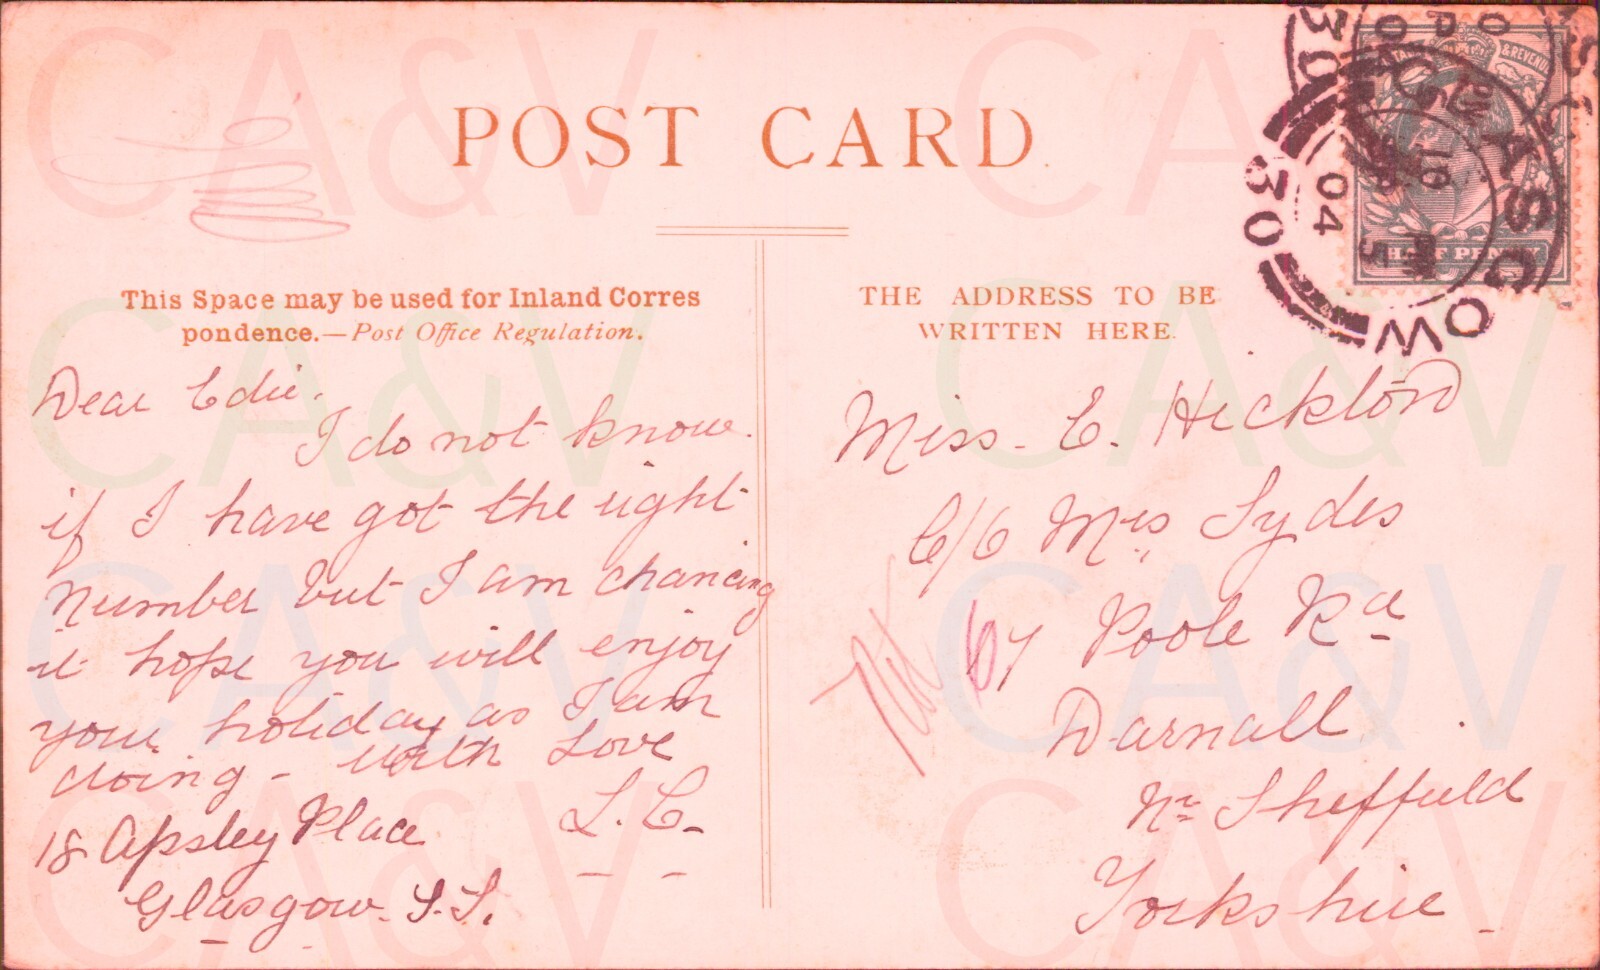 POST CARD.
This Space may be used for Inland Corres
pondence.—Post Office Regulation.
Dear Edie.
I do not know.
if I have got the right
number but I am chancing
it hope you will enjoy
your holiday as I am
doing - with Love
L.C.
18 Apsley Place
Glasgow. S.S.
THE ADDRESS TO BE
WRITTEN HERE.
Miss. E. Heckford
C/O Mrs Sydes
67 Poole Rd
Darnall
Nr Sheffield
Yorkshire
GLASGOW
30
04
& REVENUE
HALF PENNY
CA&V
CA&V
CA&V
CA&V
CA&V
CA&V
CA&V
CA&V